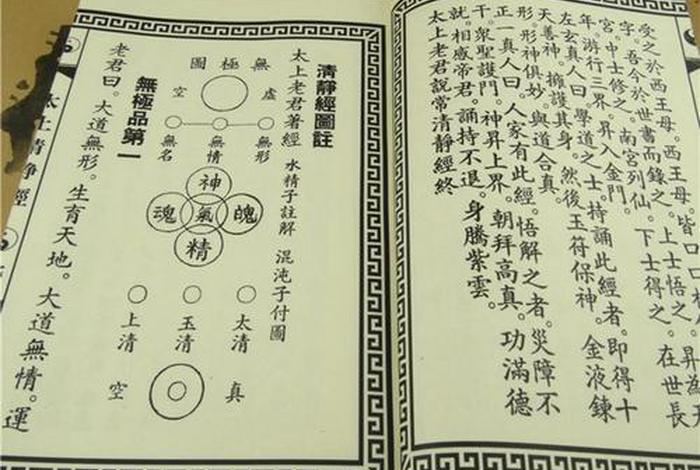 受之於西王母。西王母皆口口
字。吾今於世書而錄之。上士悟之。昇為天
宮。中士修之。南宮列仙。下士得之。在世長
年。游行三界。昇入金門。
左玄真人曰。學道之士。持誦此經者。即得十
天善神。擁護其身。然後玉符保神。金液鍊
形。形神俱妙。與道合真。
正一真人曰。人家有此經。悟解之者。災障不
干。眾聖護門。神昇上界。朝拜高真。功滿德
就。相感帝君。誦持不退。身騰紫雲。
太上老君說常清靜經終
清靜經圖註
太上老君著經 水精子註解 混沌子付圖
無極品第一
無極圖
虛
空
無形
無情
無名
神
魄
氣
魂
精
太清
玉清
上清
真
空
老君曰。大道無形。生育天地。大道無情。運
太上清靜經